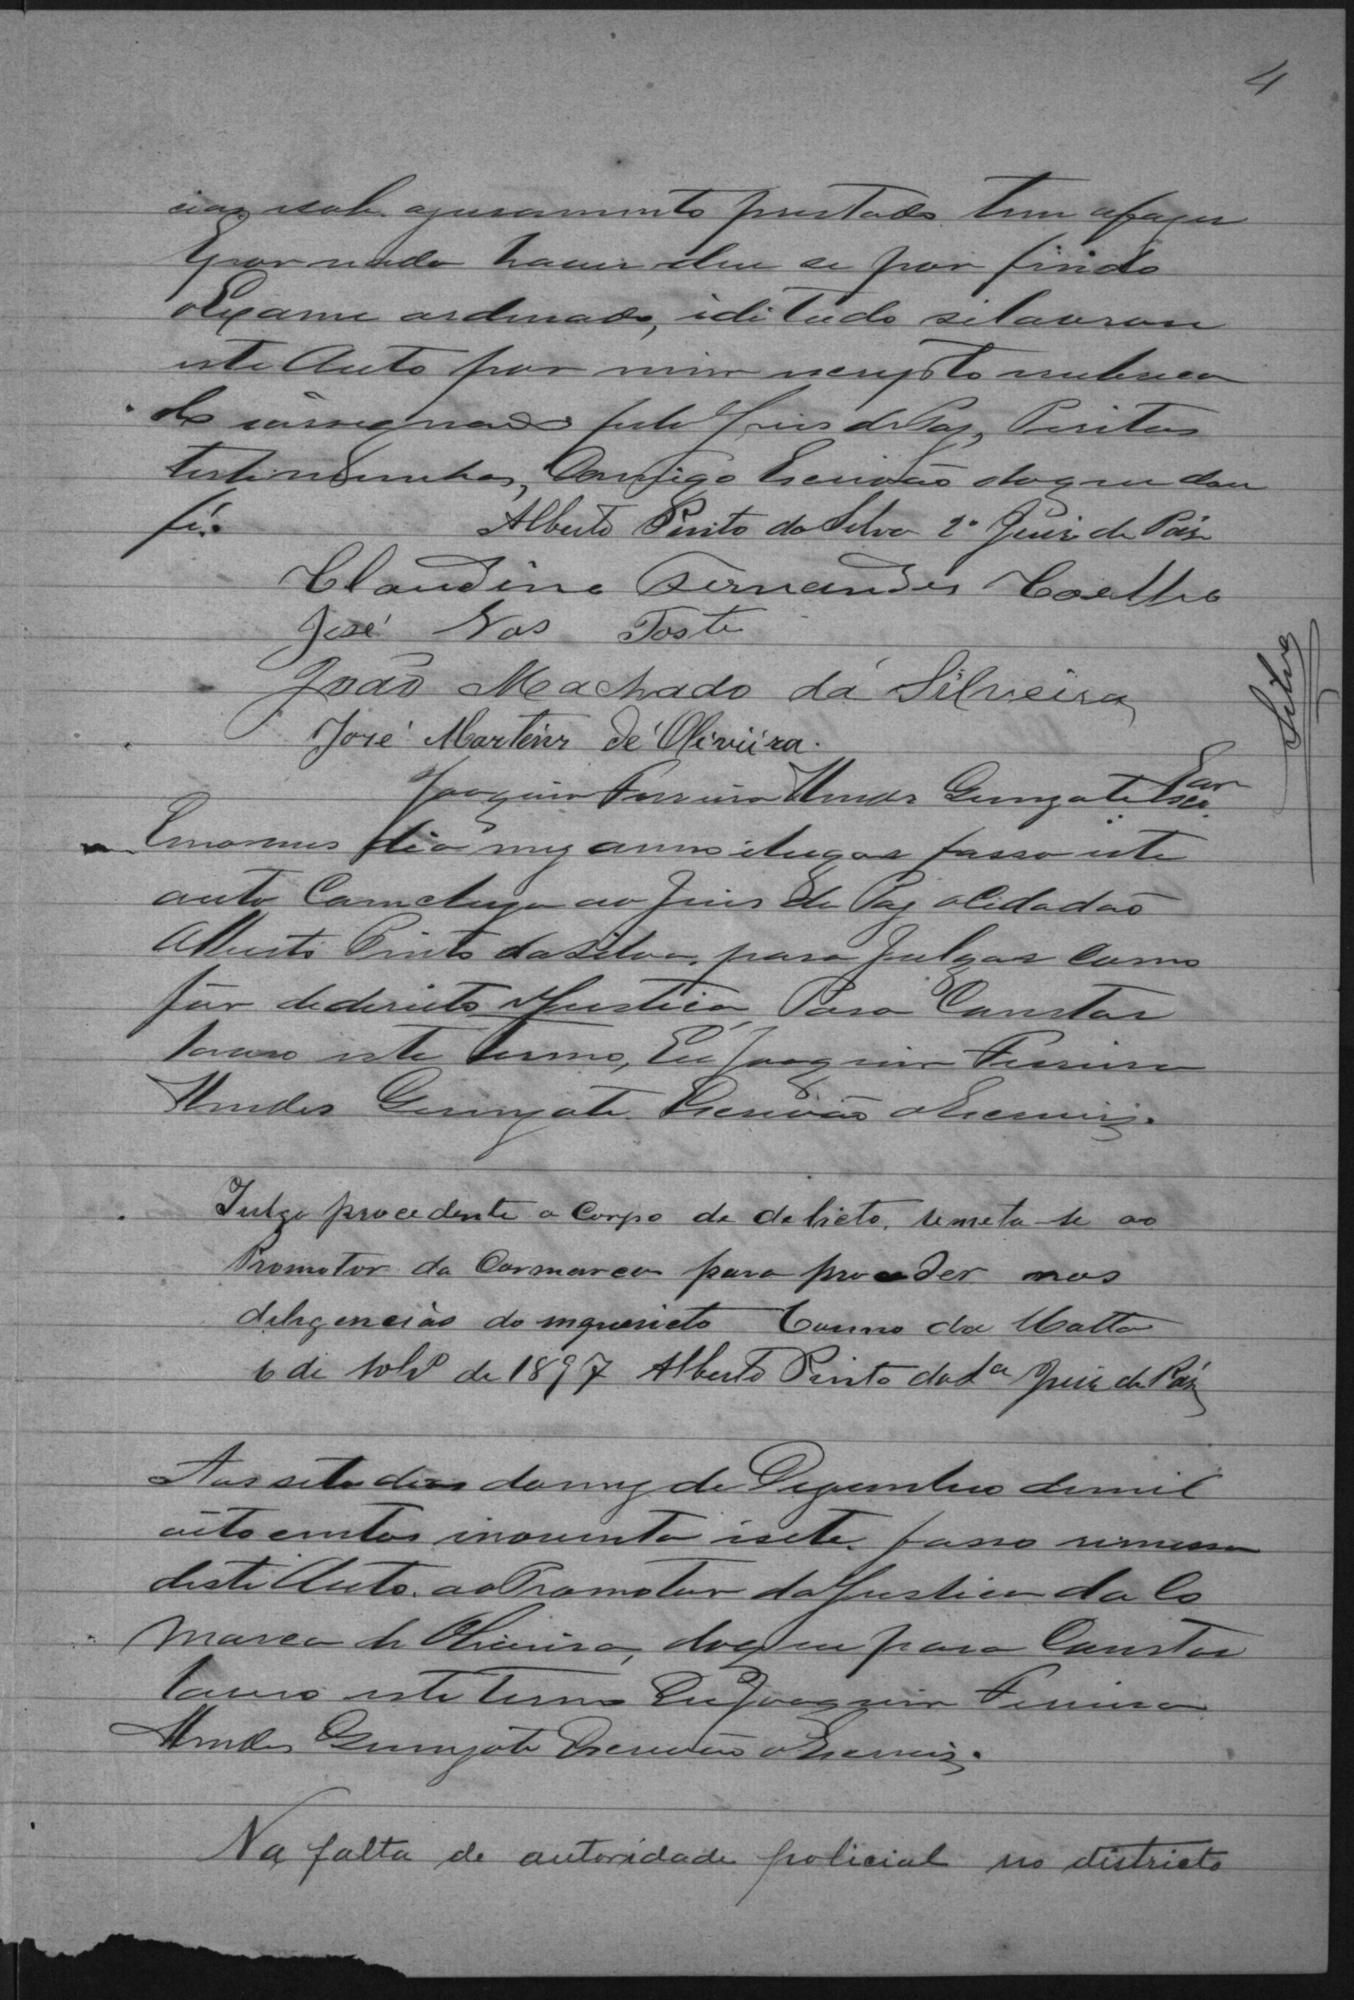 4
cias esob. ojuramento prestado tem afazer
Epor nada haver deu se por findo
oExame ordenado, editudo selavrou
este Auto por mim escripto rubrica
do eassegnado pelo Juis de Paz, Peritos
testemunhas, Comigo Escrivão doque dou
fé.
Alberto Pinto da Silva 2º Juiz de Páz
Claudino Fernandes Coelho
José Vas Toste
João Machado da Silveira
José Martins de Oliveira.
Silva
Joaquim Ferreira Mendes
Enomes dia mez anno elugar fasso este
auto Comcluzo ao Juis de Paz oCidadaõ
Alberto Pinto daSilva, para Julgar Como
fôr dedericto eJustica, Para Constar
lavro este termo, Eu Joaquim Ferreira
Mendes Escrivão oEscrevi.
Julgo procedente o Corpo de delicto, remeta-se ao
Promotor da Commarca para proceder nas
deligencias do inquerieto Carmo da Matta
6 de 10bro de 1897 Alberto Pinto da Sa Juiz de Páz
Aos sete dias do mez de Dezembro demil
oito centos inoventa isete. fasso remessa
desti Auto. aoPromotor daJustica da Co
marca de Oliveira, doque para Constar
lavro este termo Eu Joaquim Ferreira
Mendes Escrivão oEscrevi.
Na falta de autoridade policial no districto